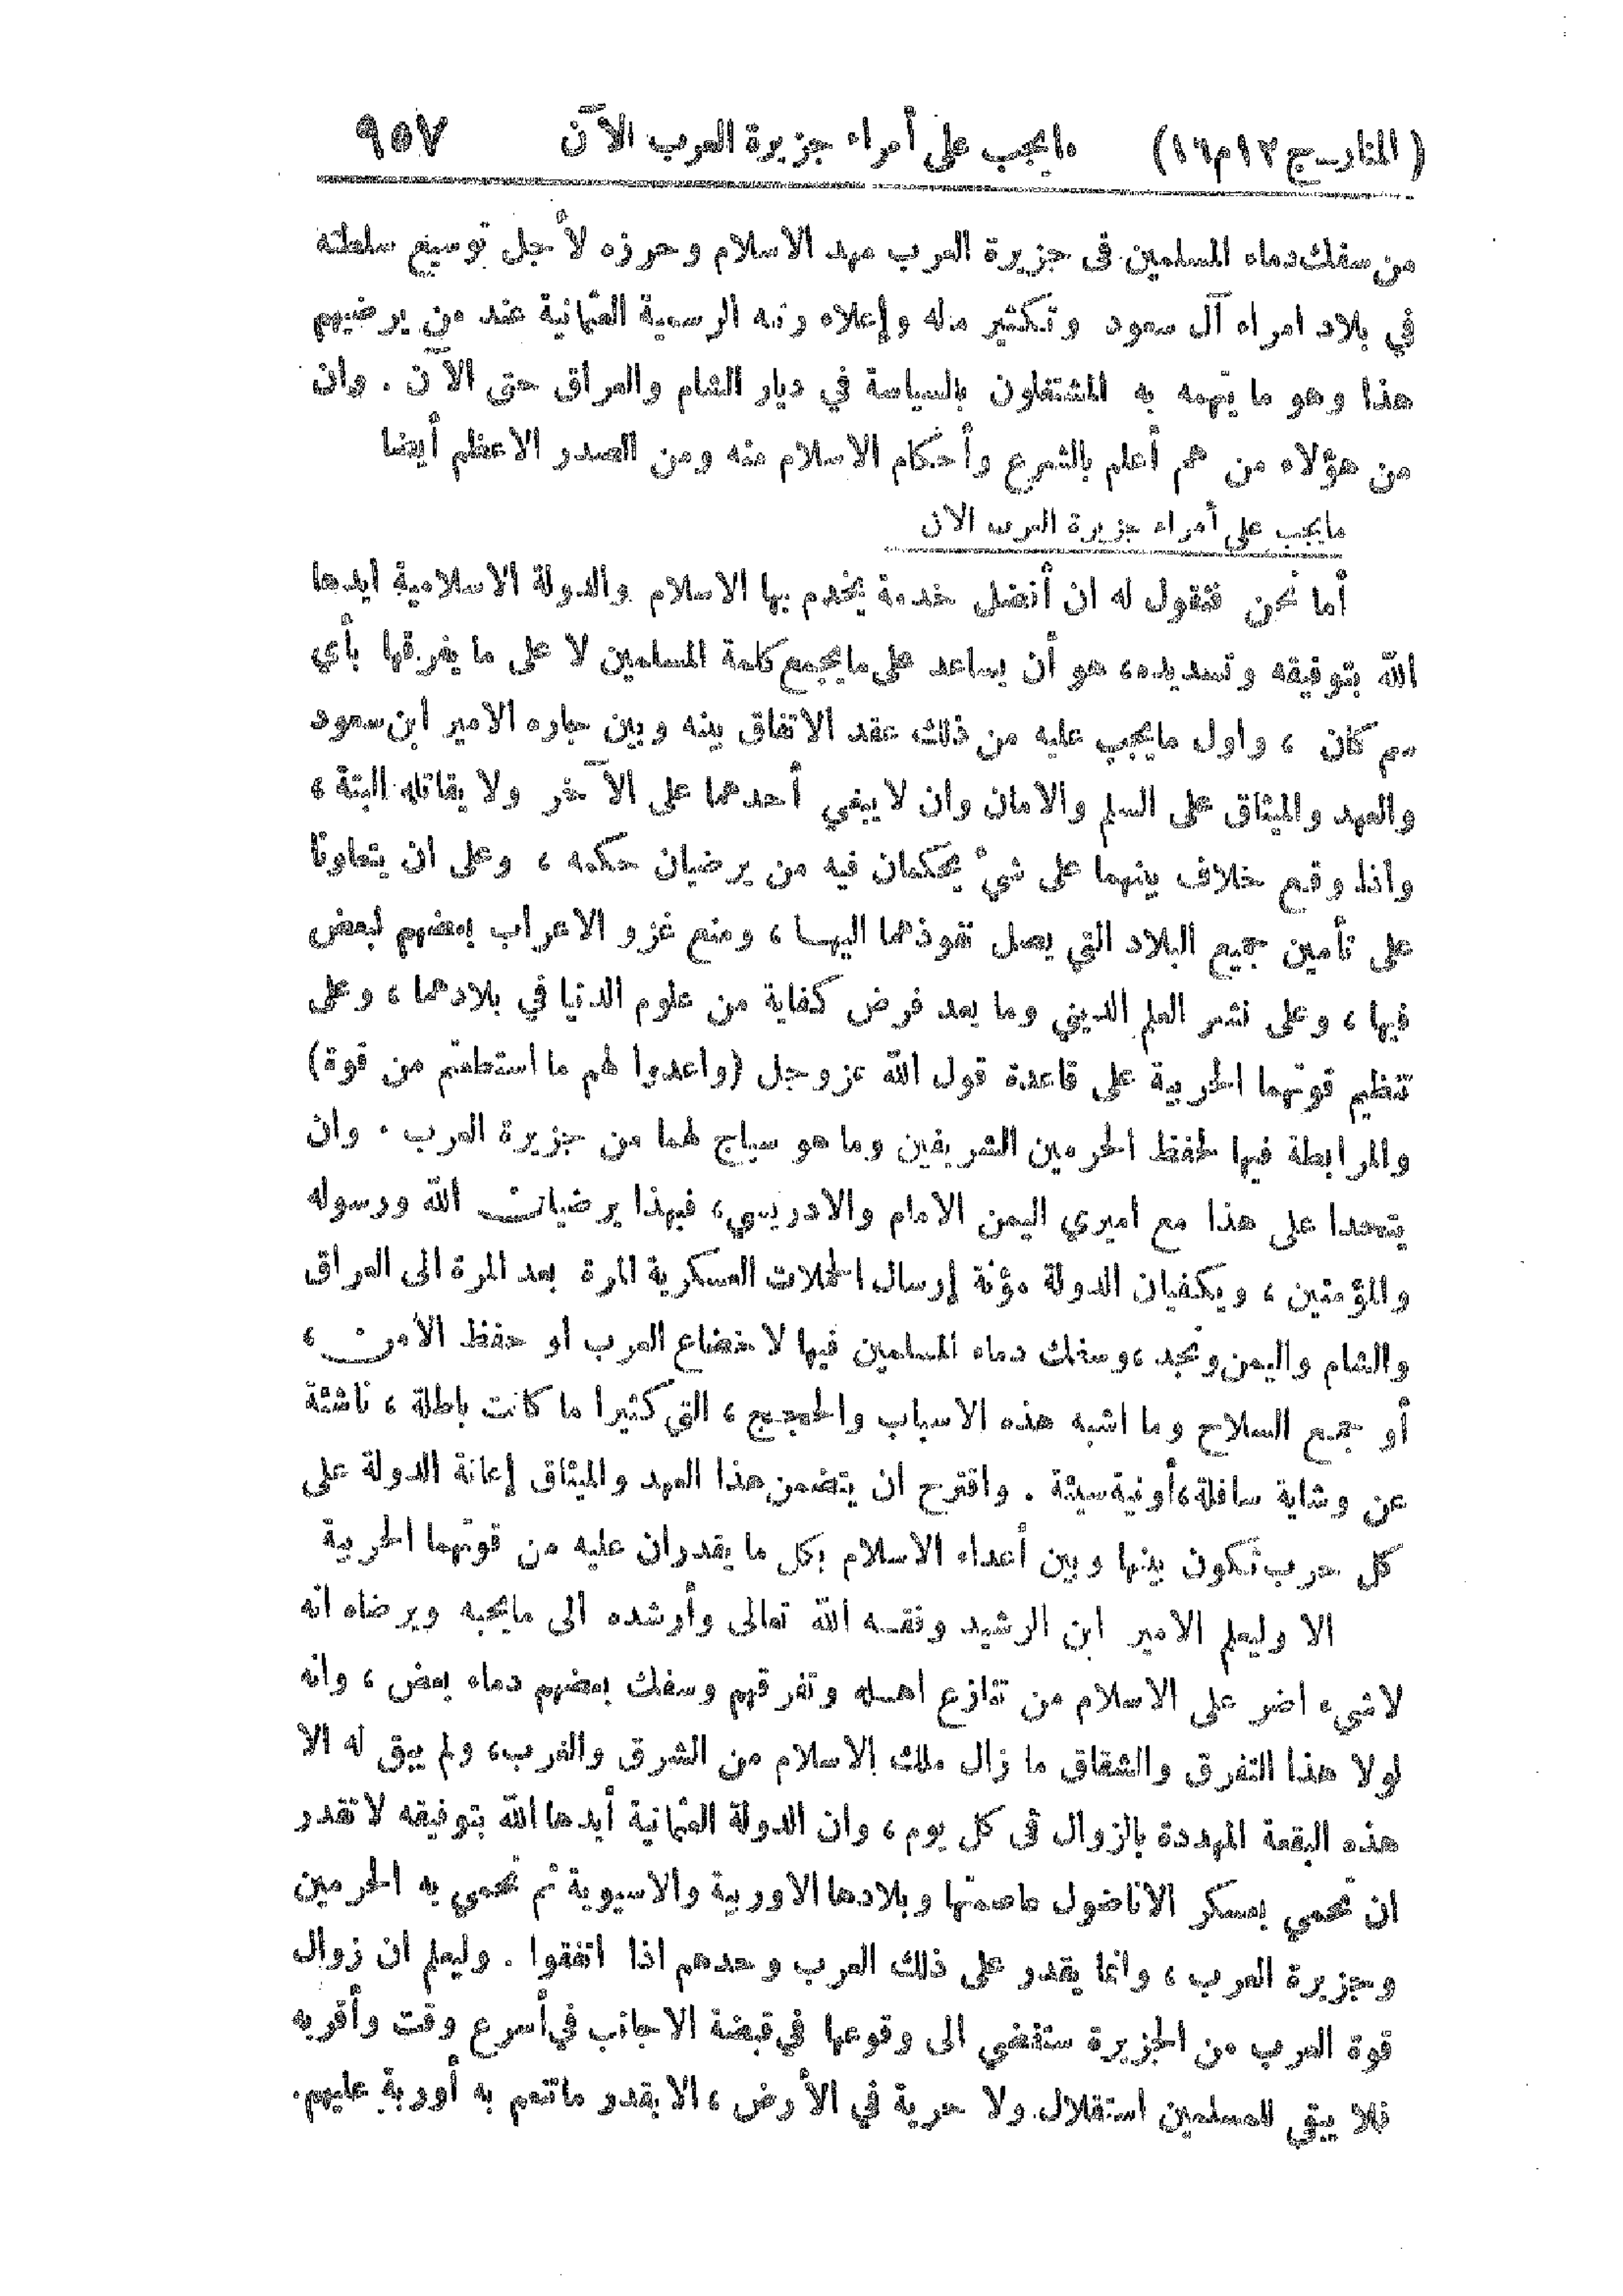 (المنار ـ ج ١٢ م ١٦) مايجب على أمراء جزيرة العرب الآن ٩٥٧
من سفك دماء المسلمين في جزيرة العرب مهد الاسلام وحرزه لأجل توسيع سلطته
في بلاد امراء آل سعود وتكثير ماله وإعلاء رتبه الرسمية العثمانية عند من يرضيهم
هذا وهو ما يتهمه به المشتغلون بالسياسة في ديار الشام والعراق حتى الآن . وان
من هؤلاء من هم أعلم بالشرع وأحكام الاسلام منه ومن الصدر الاعظم أيضا
مايجب على أمراء جزيرة العرب الآن
أما نحن فنقول له ان أفضل خدمة يخدم بها الاسلام والدولة الاسلامية ايدها
الله بتوفيقه وتسديده، هو أن يساعد على مايجمع كلمة المسلمين لا على ما يفرقها بأي
اسم كان ، واول مايجب عليه من ذلك عقد الاتفاق بينه وبين جاره الامير ابن سعود
والعهد والميثاق على السلم والامان وان لا يبغي أحدهما على الآخر ولا يقاتله البتة ،
واذا وقع خلاف بينهما على شيء يحكمان فيه من يرضيان حكمه ، وعلى ان يتعاونا
على تأمين جميع البلاد التي يصل نفوذهما اليهـا ، ومنع غزو الاعراب بعضهم لبعض
فيها ، وعلى نشر العلم الديني وما يعد فرض كفاية من علوم الدنيا في بلادهما ، وعلى
تنظيم قوتهما الحربية على قاعدة قول الله عز وجل (واعدوا لهم ما استطعتم من قوة)
والمرابطة فيها لحفظ الحرمين الشريفين وما هو سياج لهما من جزيرة العرب . وان
يتحدا على هذا مع اميري اليمن الامام والادريسي، فبهذا يرضيان الله ورسوله
والمؤمنين ، ويكفيان الدولة مؤنة إرسال الحملات العسكرية المرة بعد المرة الى العراق
والشام واليمن ونجد ، وسفك دماء المسلمين فيها لاخضاع العرب او حفظ الامن ،
أو جمع السلاح وما اشبه هذه الاسباب والحجج ، التي كثيرا ما كانت باطلة ، ناشئة
عن وشاية سافلة، أو نية سيئة . واقترح ان يتضمن هذا العهد والميثاق إعانة الدولة على
كل حرب تكون بينها وبين أعداء الاسلام بكل ما يقدران عليه من قوتهما الحربية
الا وليعلم الامير ابن الرشيد وفقـه الله تعالى وأرشده الى مايحبه ويرضاه انه
لاشيء اضر على الاسلام من تنازع اهـله وتفرقهم وسفك بعضهم دماء بعض ، وانه
لولا هذا التفرق والشقاق ما زال ملك الاسلام من الشرق والغرب، ولم يبق له الا
هذه البقعة المهددة بالزوال في كل يوم ، وان الدولة العثمانية أيدها الله بتوفيقه لا تقدر
ان تحمي بعسكر الاناضول عاصمتها وبلادها الاوربية والاسيوية ثم تحمي به الحرمين
وجزيرة العرب ، وانما يقدر على ذلك العرب وحدهم اذا اتفقوا . وليعلم ان زوال
قوة العرب من الجزيرة ستفضي الى وقوعها في قبضة الاجانب في أسرع وقت وأقربه
فلا يبقى للمسلمين استقلال ولا حرية في الأرض ، الا بقدر ماتنعم به أوربة عليهم.